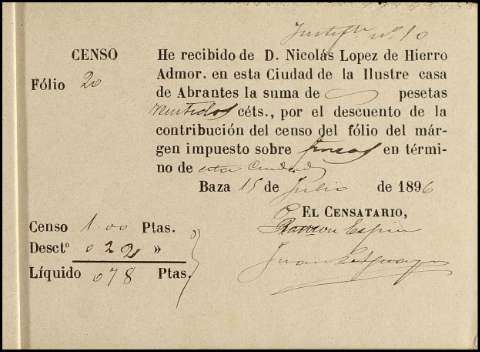 Justifte nº 10
CENSO
Fólio 20
He recibido de D. Nicolás Lopez de Hierro
Admor. en esta Ciudad de la Ilustre casa
de Abrantes la suma de pesetas
veintidos céts., por el descuento de la
contribución del censo del fólio del már-
gen impuesto sobre fincas en térmi-
no de esta Ciudad
Baza 15 de Julio de 1896
EL CENSATARIO,
Ramon Espin
Censo 1.00 Ptas.
Desctº 0 22 »
Líquido 0 78 Ptas.
Juan